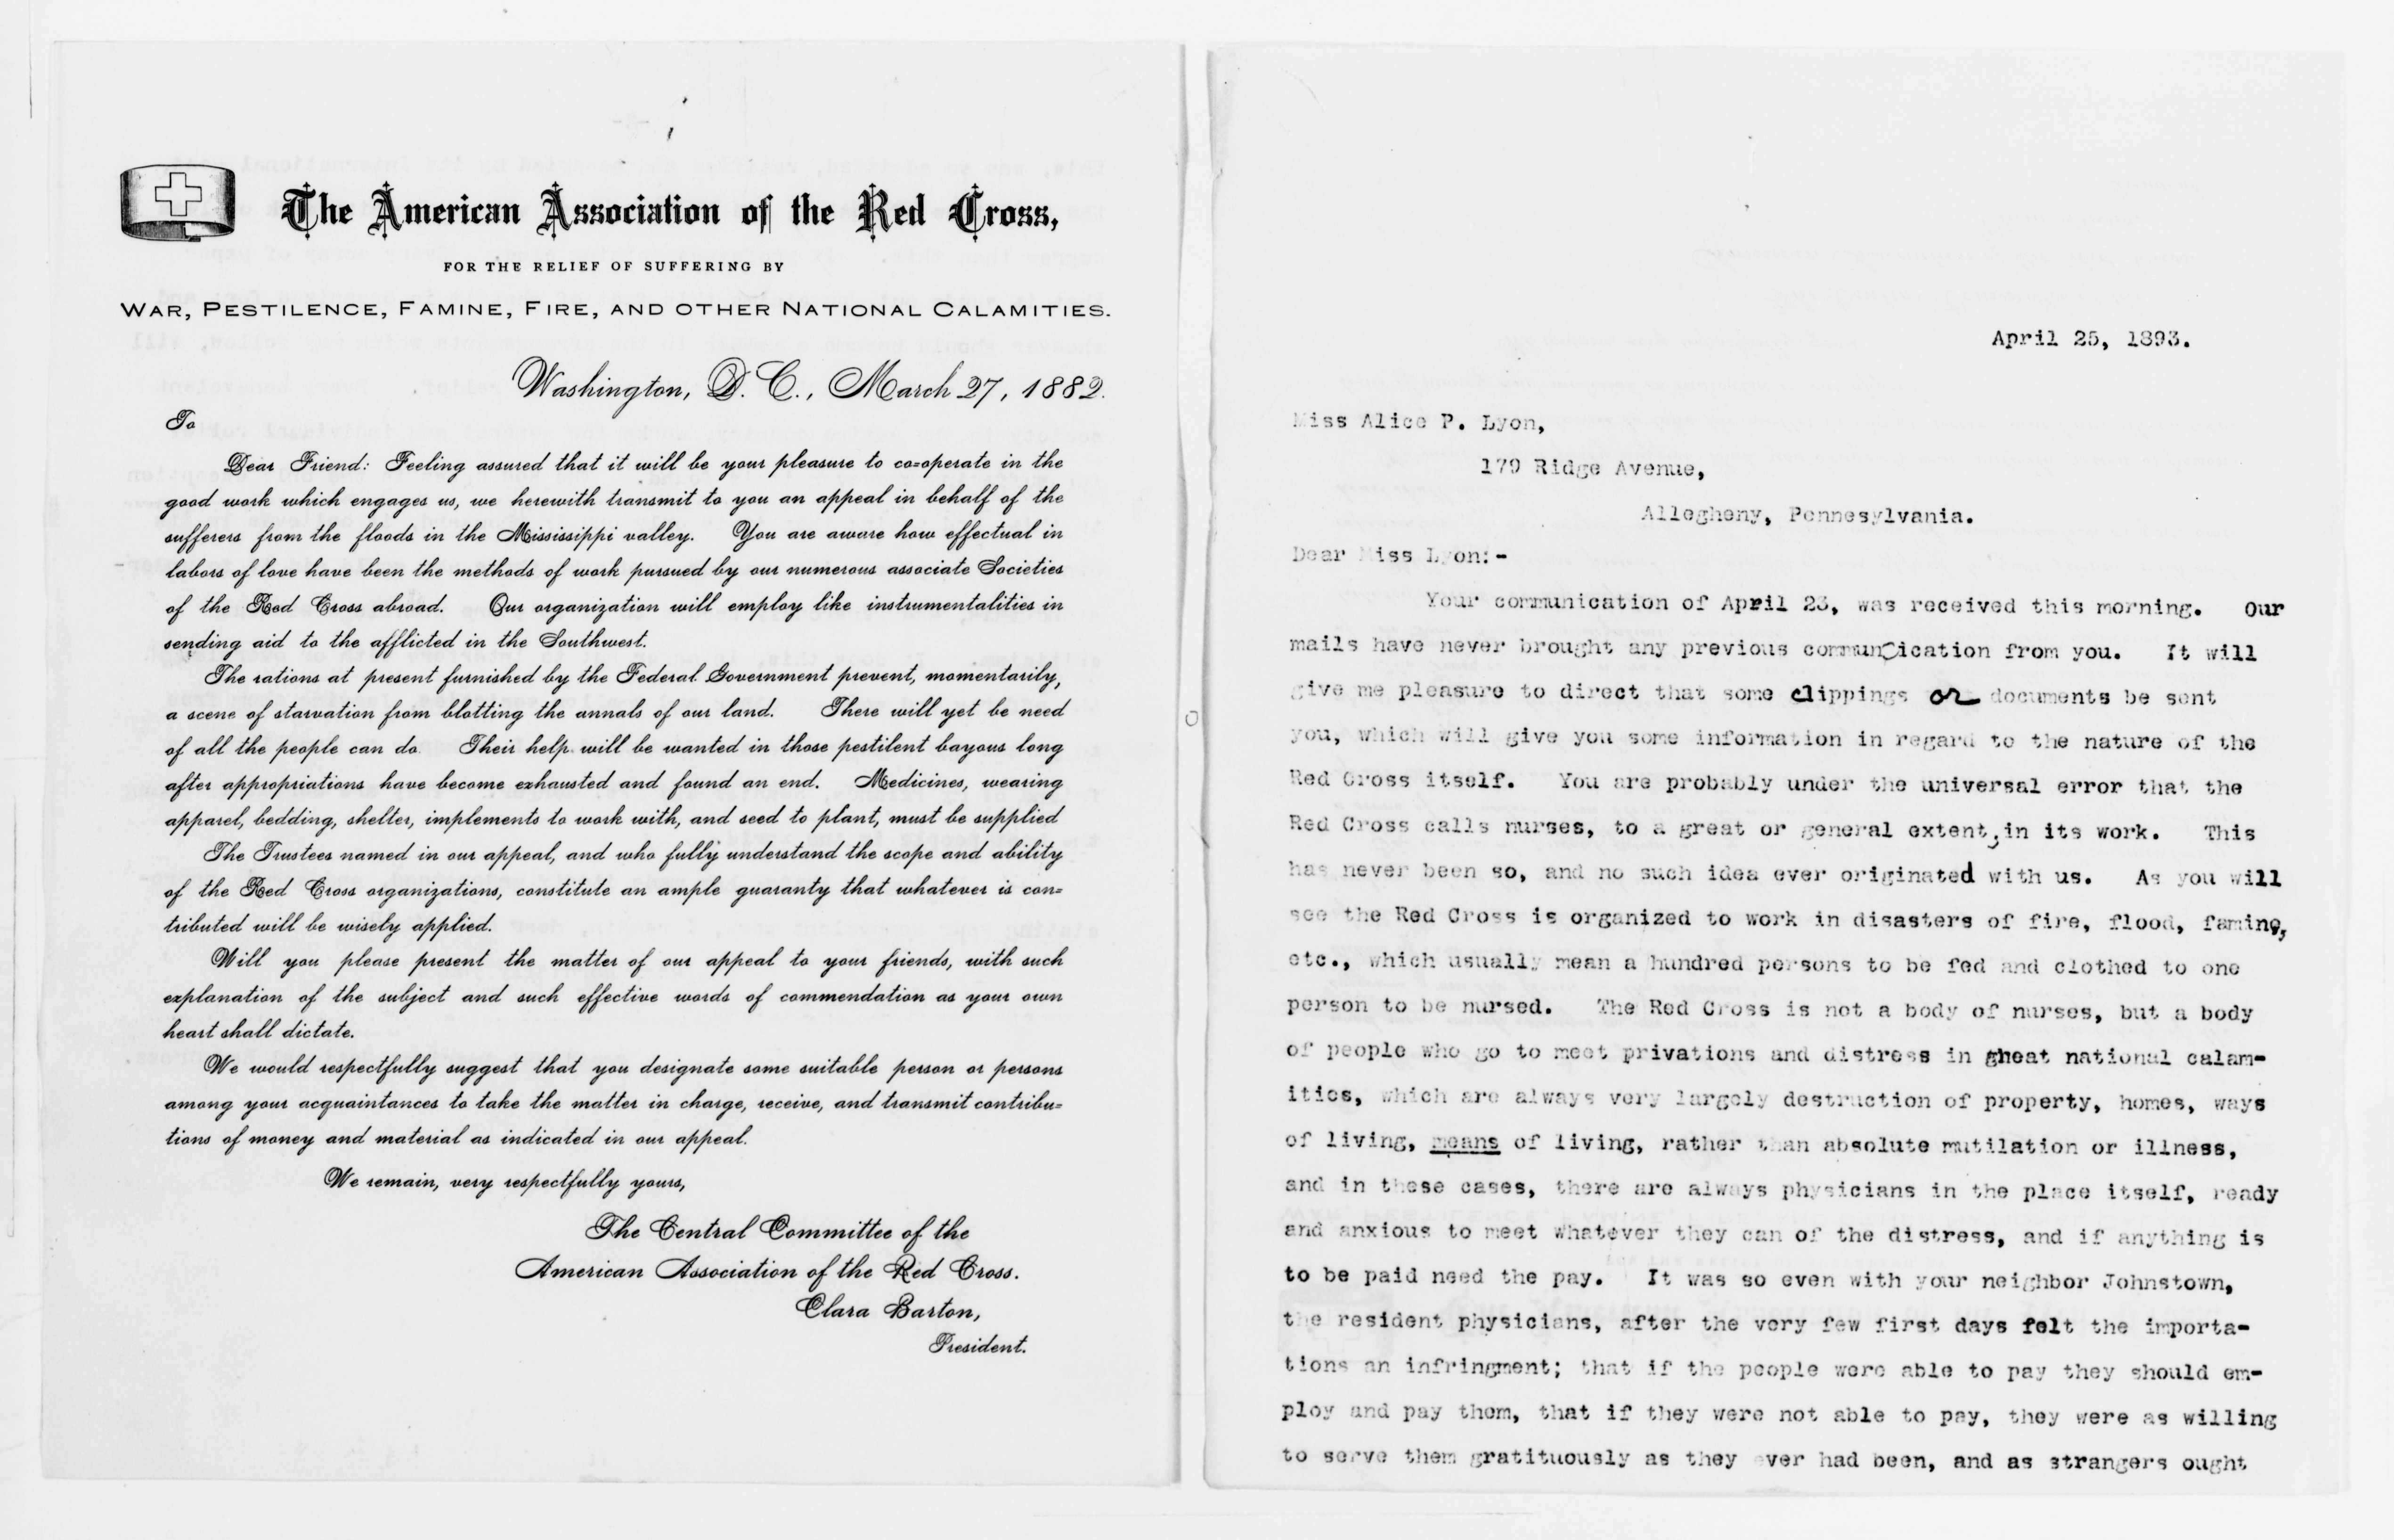 The American Association of the Red Cross,
FOR THE RELIEF OF SUFFERING BY
WAR, PESTILENCE, FAMINE, FIRE, AND OTHER NATIONAL CALAMITIES.
Washington, D. C., March 27, 1882.
To
Dear Friend: Feeling assured that it will be your pleasure to co=operate in the
good work which engages us, we herewith transmit to you an appeal in behalf of the
sufferers from the floods in the Mississippi valley. You are aware how effectual in
labors of love have been the methods of work pursued by our numerous associate Societies
of the Red Cross abroad. Our organization will employ like instrumentalities in
sending aid to the afflicted in the Southwest.
The rations at present furnished by the Federal Government prevent, momentarily,
a scene of starvation from blotting the annals of our land. There will yet be need
of all the people can do. Their help will be wanted in those pestilent bayous long
after appropriations have become exhausted and found an end. Medicines, wearing
apparel, bedding, shelter, implements to work with, and seed to plant, must be supplied
The Trustees named in our appeal, and who fully understand the scope and ability
of the Red Cross organizations, constitute an ample guaranty that whatever is con=
tributed will be wisely applied.
Will you please present the matter of our appeal to your friends, with such
explanation of the subject and such effective words of commendation as your own
heart shall dictate.
We would respectfully suggest that you designate some suitable person or persons
among your acquaintances to take the matter in charge, receive, and transmit contribu=
tions of money and material as indicated in our appeal.
We remain, very respectfully yours,
The Central Committee of the
American Association of the Red Cross.
Clara Barton,
President.
April 25, 1893.
Miss Alice P. Lyon,
179 Ridge Avenue,
Allegheny, Pennesylvania.
Dear Miss Lyon:-
Your communication of April 23, was received this morning. Our
mails have never brought any previous communcication from you. It will
give me pleasure to direct that some clippings or documents be sent
you, which will give you some information in regard to the nature of the
Red Cross itself. You are probably under the universal error that the
Red Cross calls nurses, to a great or general extent, in its work. This
has never been so, and no such idea ever originated with us. As you will
see the Red Cross is organized to work in disasters of fire, flood, famine,
etc., which usually mean a hundred persons to be fed and clothed to one
person to be nursed. The Red Cross is not a body of nurses, but a body
of people who go to meet privations and distress in gheat national calam-
ities, which are always very largely destruction of property, homes, ways
of living, means of living, rather than absolute mutilation or illness,
and in these cases, there are always physicians in the place itself, ready
and anxious to meet whatever they can of the distress, and if anything is
to be paid need the pay. It was so even with your neighbor Johnstown,
the resident physicians, after the very few first days felt the importa-
tions an infringment; that if the people were able to pay they should em-
ploy and pay them, that if they were not able to pay, they were as willing
to serve them gratituously as they ever had been, and as strangers ought